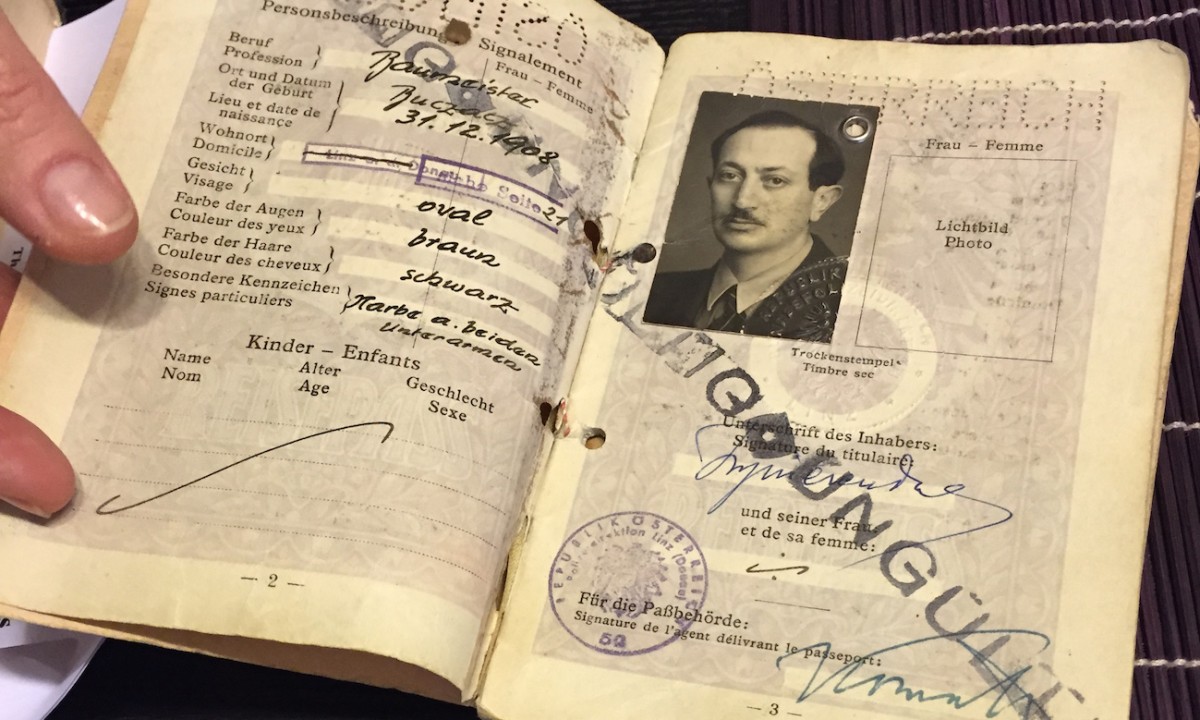 Personsbeschreibung
Signalement
Frau – Femme
Beruf
Profession
Baumeister
Ort und Datum
der Geburt
Lieu et date de
naissance
Buczacz
31.12.1908
Wohnort
Domicile
Siehe Seite 21
Gesicht
Visage
oval
Farbe der Augen
Couleur des yeux
braun
Farbe der Haare
Couleur des cheveux
schwarz
Besondere Kennzeichen
Signes particuliers
Narbe a. beiden
Unterarmen
Kinder – Enfants
Name
Nom
Alter
Age
Geschlecht
Sexe
— 2 —
ÖSTERREICH
Frau – Femme
Lichtbild
Photo
Trockenstempel
Timbre sec
UNGÜLTIG
Unterschrift des Inhabers:
Signature du titulaire:
und seiner Frau:
et de sa femme:
REPUBLIK ÖSTERREICH
Linz (Donau)
52
Für die Paßbehörde:
Signature de l'agent délivrant le passeport:
— 3 —